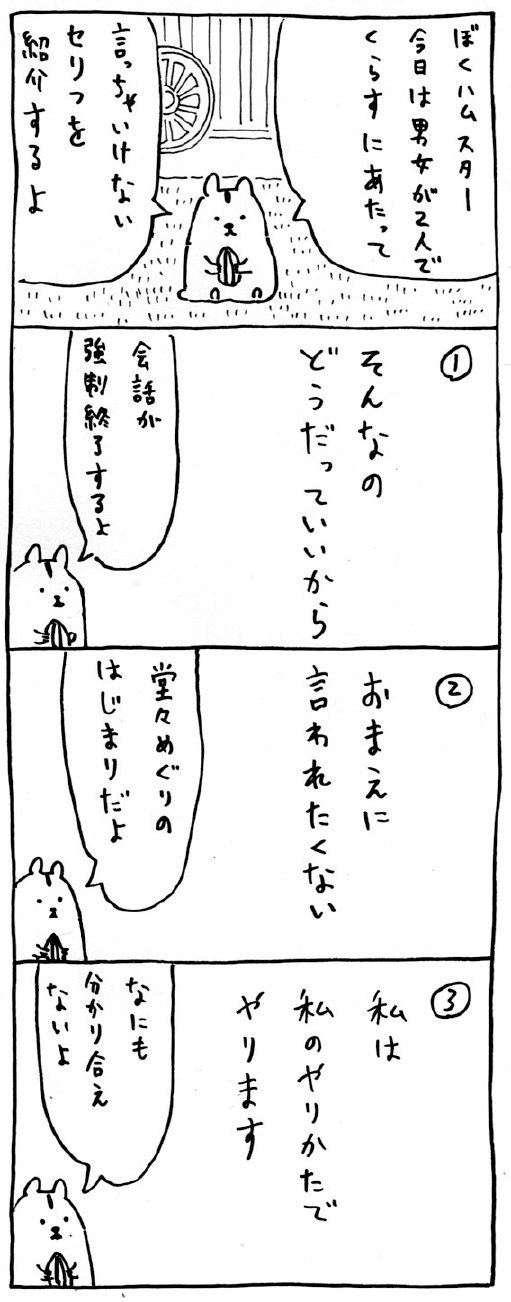 ぼくハムスター
今日は男女が2人で
くらすにあたって
言っちゃいけない
セリフを
紹介するよ
①
そんなの
どうだっていいから
会話が
強制終了するよ
②
おまえに
言われたくない
堂々めぐりの
はじまりだよ
③
私は
私のやりかたで
やります
なにも
分かり合え
ないよ